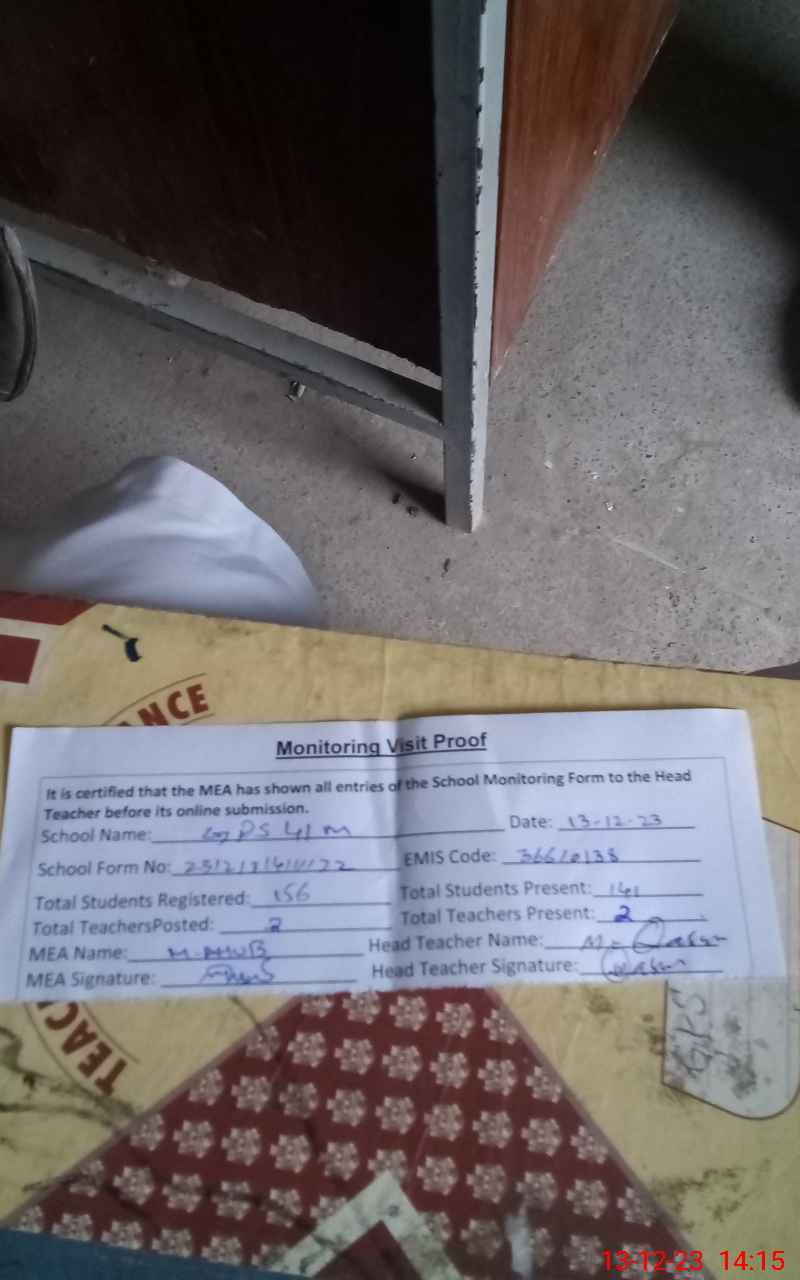 NCE
Monitoring Visit Proof
It is certified that the MEA has shown all entries of the School Monitoring Form to the Head
Teacher before its online submission.
School Name: Date: 13-12-23
School Form No: EMIS Code:
Total Students Registered: 156 Total Students Present: 141
Total TeachersPosted: 2 Total Teachers Present: 2
MEA Name: Head Teacher Name: M. Qasim
MEA Signature: Head Teacher Signature: Qasim
TEAC
GPS
13-12-23 14:15